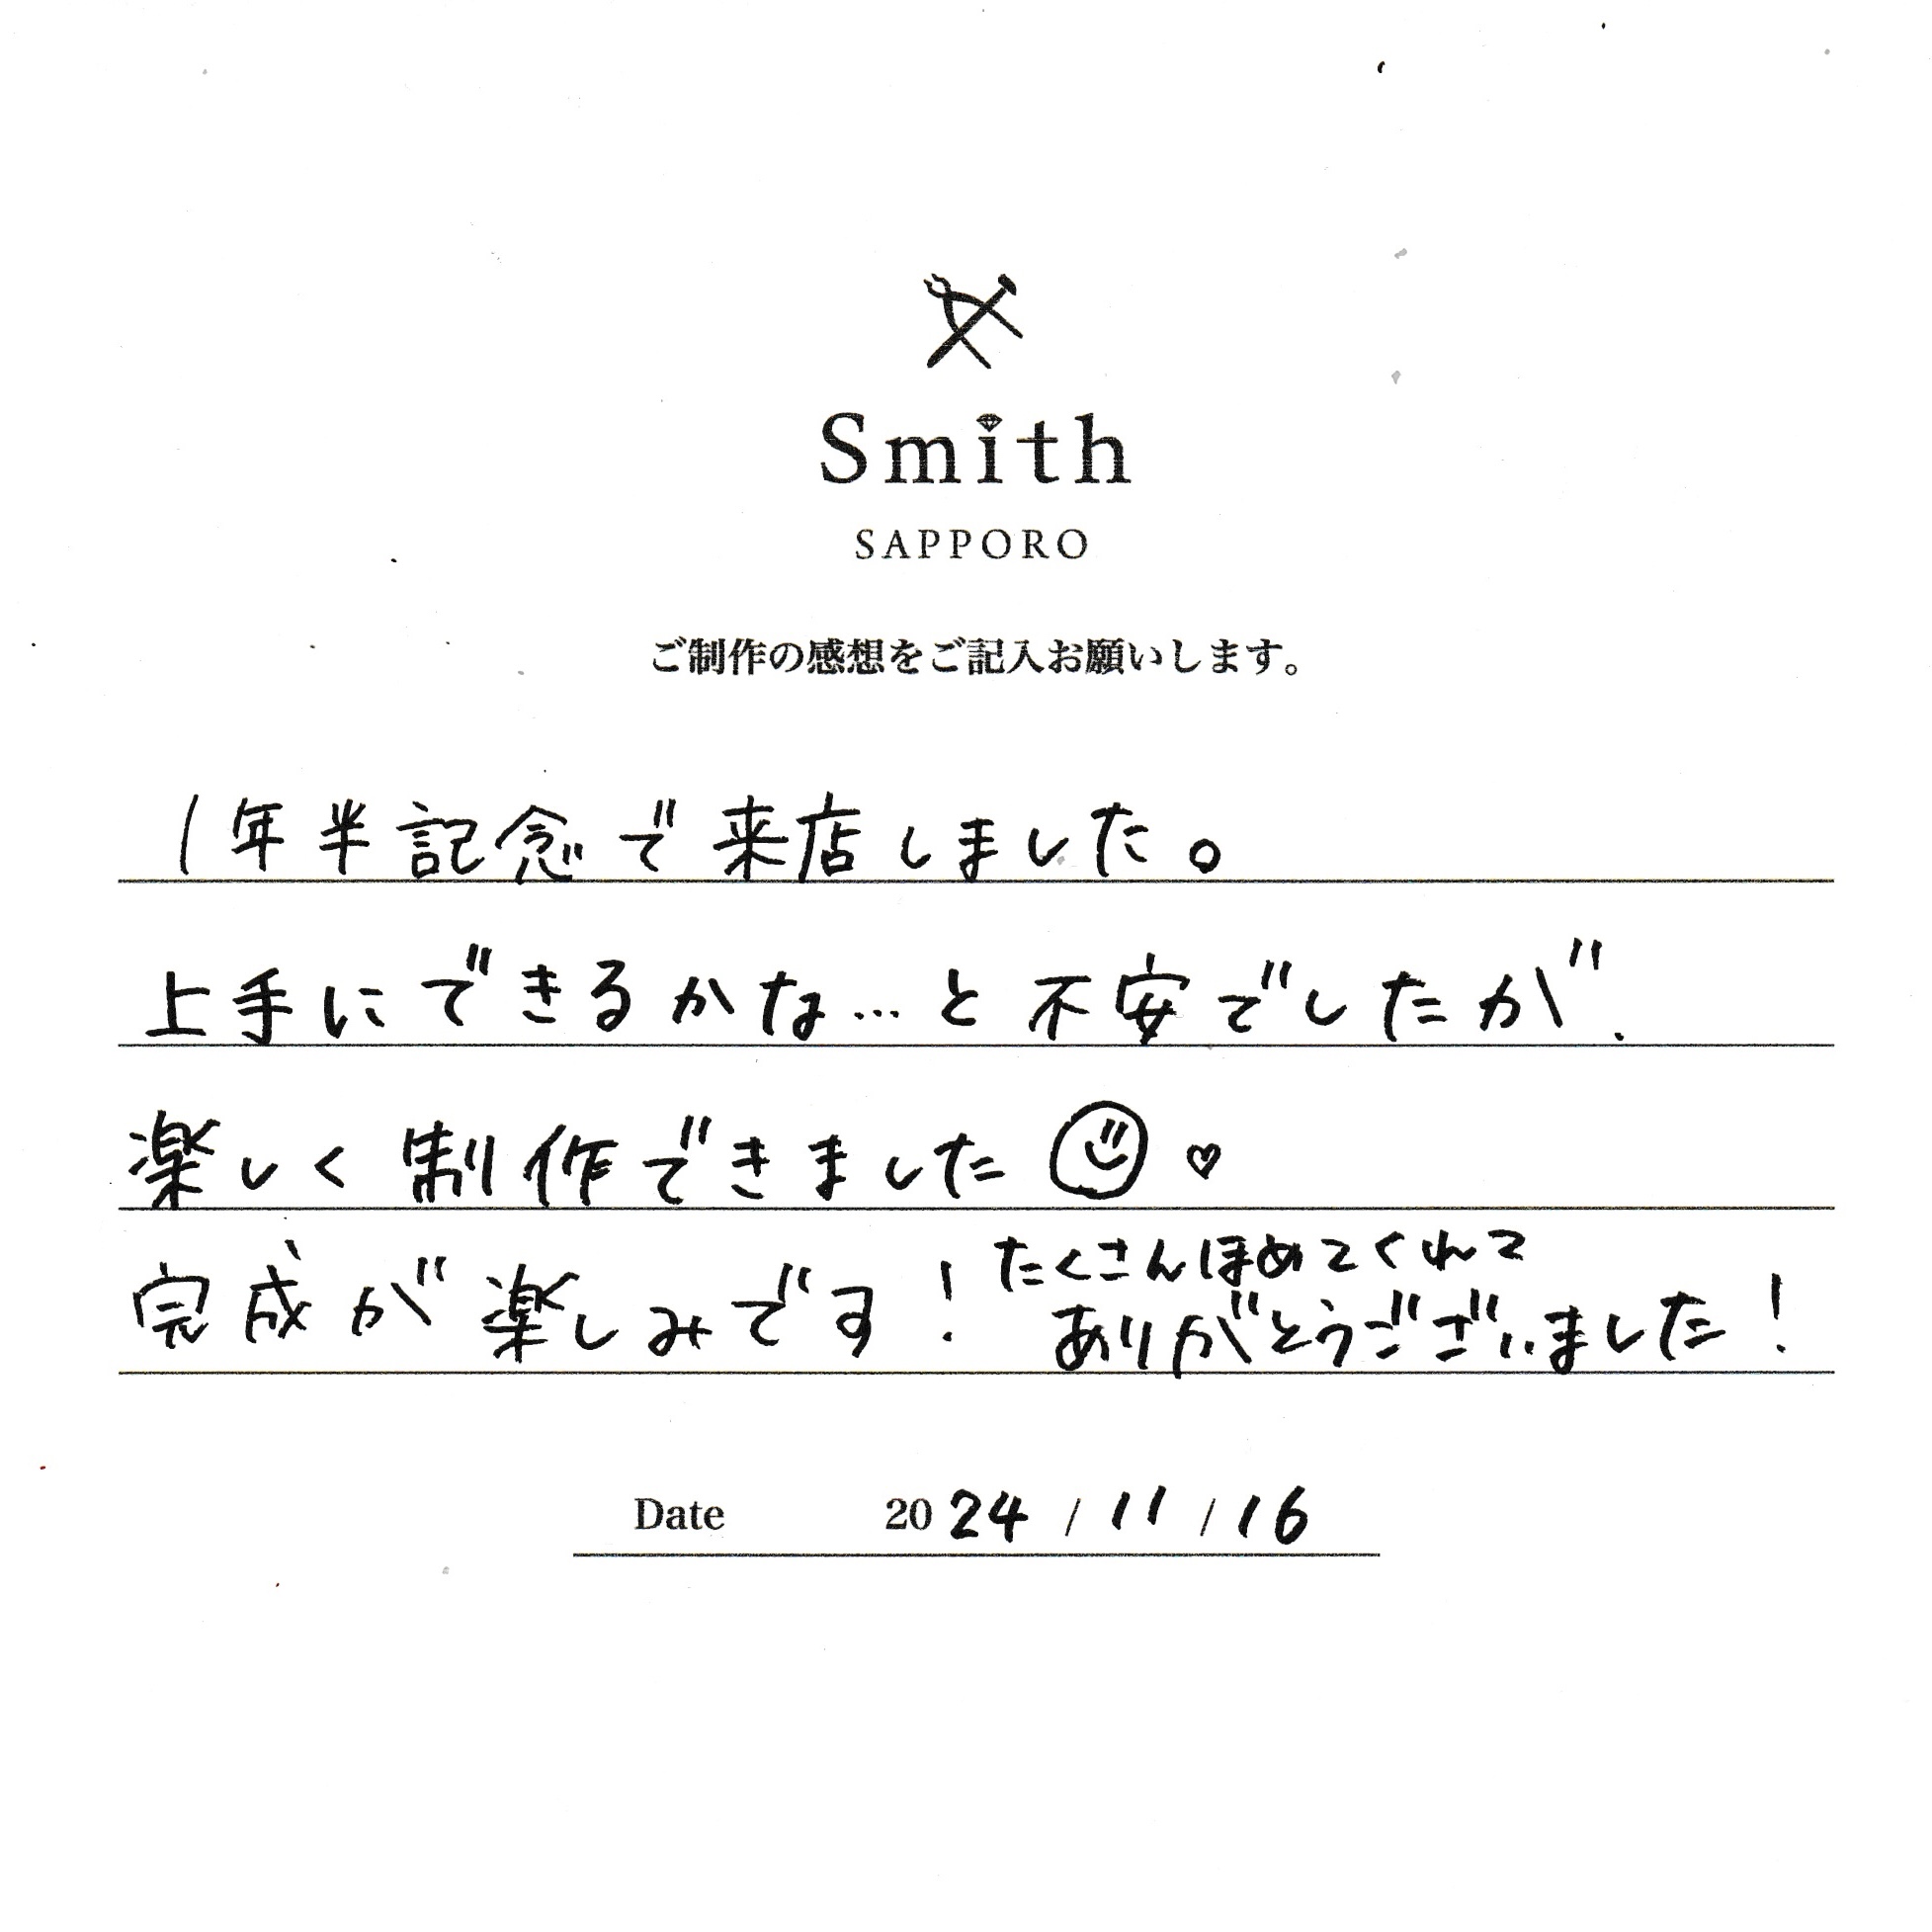 Smith
SAPPORO
ご制作の感想をご記入お願いします。
1年半記念で来店しました。
上手にできるかな…と不安でしたが、
楽しく制作できました☺♡
完成が楽しみです！たくさんほめてくれて
ありがとうございました！
Date 2024/11/16